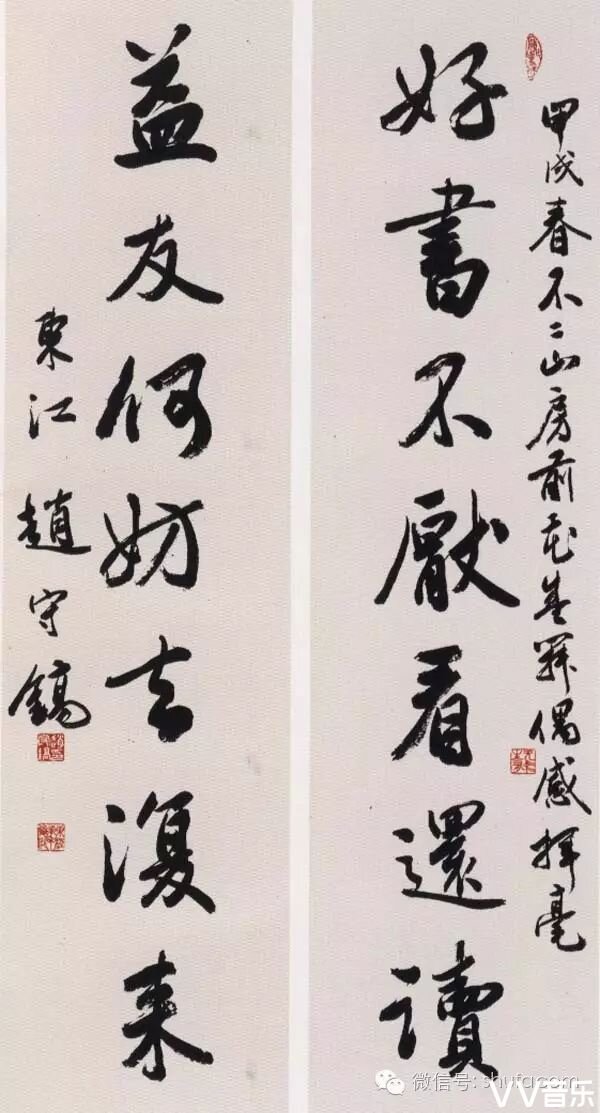 甲戌春不二山房前花偶感揮毫
好書不厭看還讀
益友何妨去復来
東江趙守鎬
微信号: shufacom
VV音乐